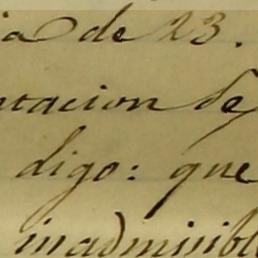 ia de 23.
ntacion de
digo: que
inadmisibl